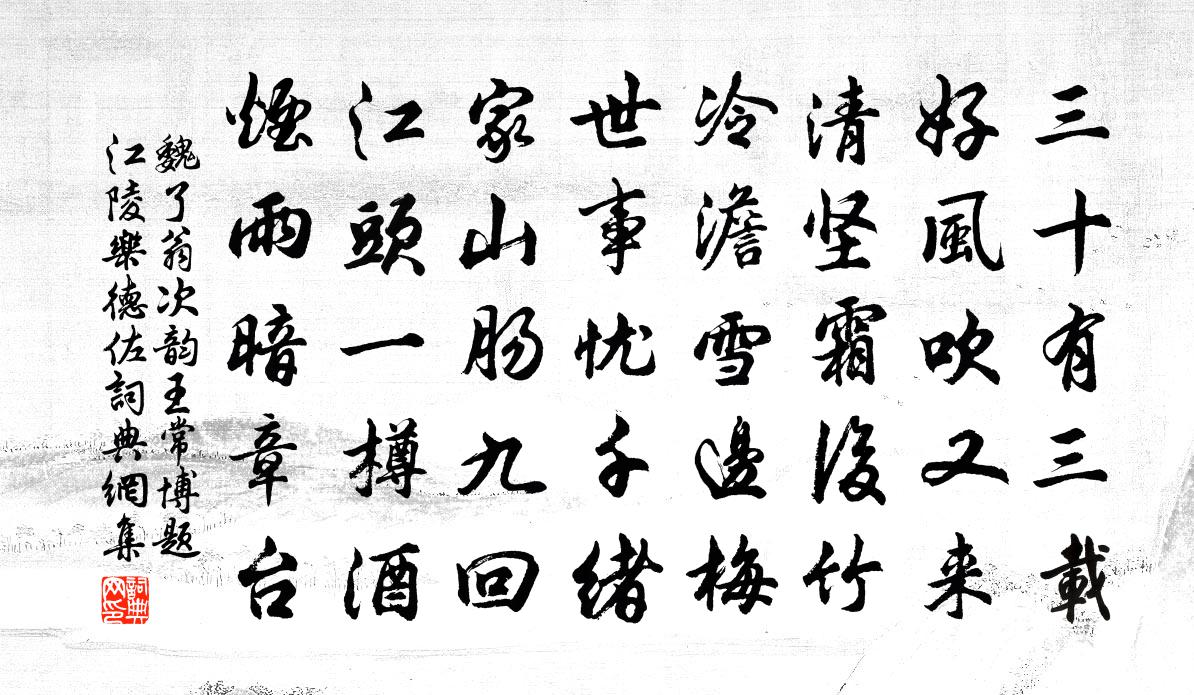 三十有三載
好風吹又来
清坚霜後竹
冷澹雪邊梅
世事忧千緒
家山肠九回
江頭一樽酒
煙雨暗章台
魏了翁次韵王常博题
江陵樂德佐詞典網集
詞典網印